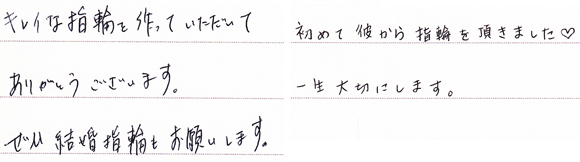 キレイな指輪を作っていただいて
ありがとうございます。
ぜひ結婚指輪もお願いします。
初めて彼から指輪を頂きました♡
一生大切にします。